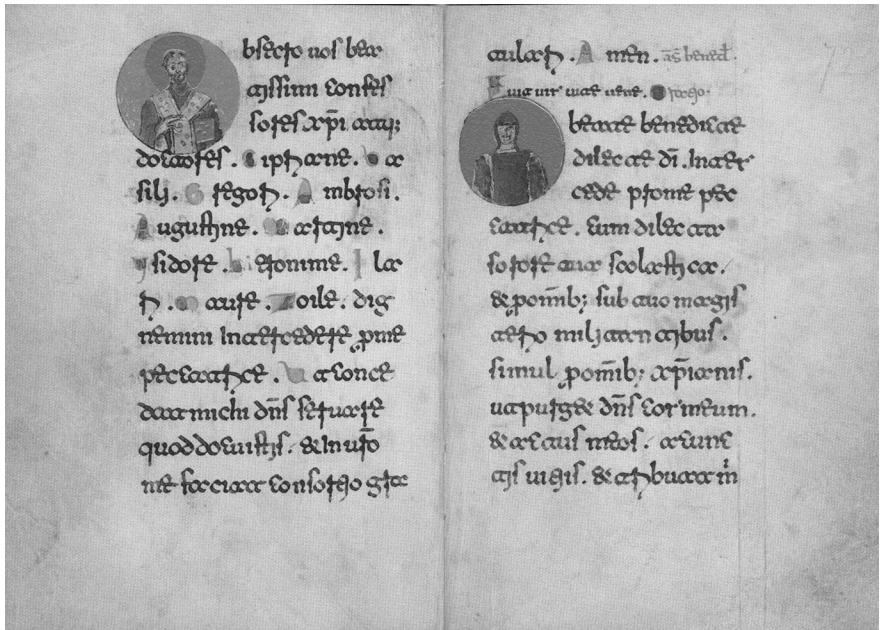 bsecro uos bea
tissimi confes
sores xp̄i atq;
doctores. Cipriane. Ba
silii. Gregorii. Ambrosi.
Augustine. Martine.
Ysidore. Ieronime. Ila
rii. Maure. Zoile. dig
nemini intercedere p me
peccatrice. Ut conce
dat michi dn̄s seruare
quod docuistis. & in ur̄o
me faciat consortio gra
tulari. Amen. an̄s bened.
Fuit uir uite uene. Oratio.
beate benedicte
dilecte dī. Inter
cede pro me pec
catrice. cum dilecta
sorore tua scolastica.
& p om̄ib; sub tuo magis
terio militantibus.
simul p om̄ib; xp̄ianis.
ut purget dn̄s cor meum.
& actus meos. a cunc
tis uitiis. & tribuat m